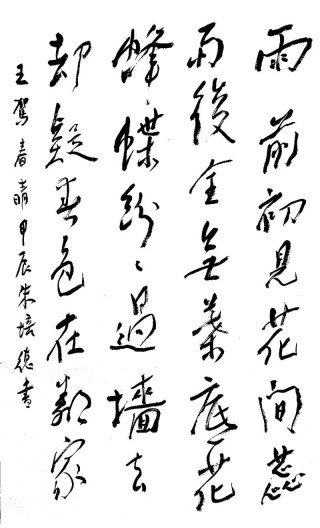 雨前初見花間蕊
雨後全無葉底花
蜂蝶紛〻過墻去
却疑春色在鄰家
王駕春晴甲辰朱培德書